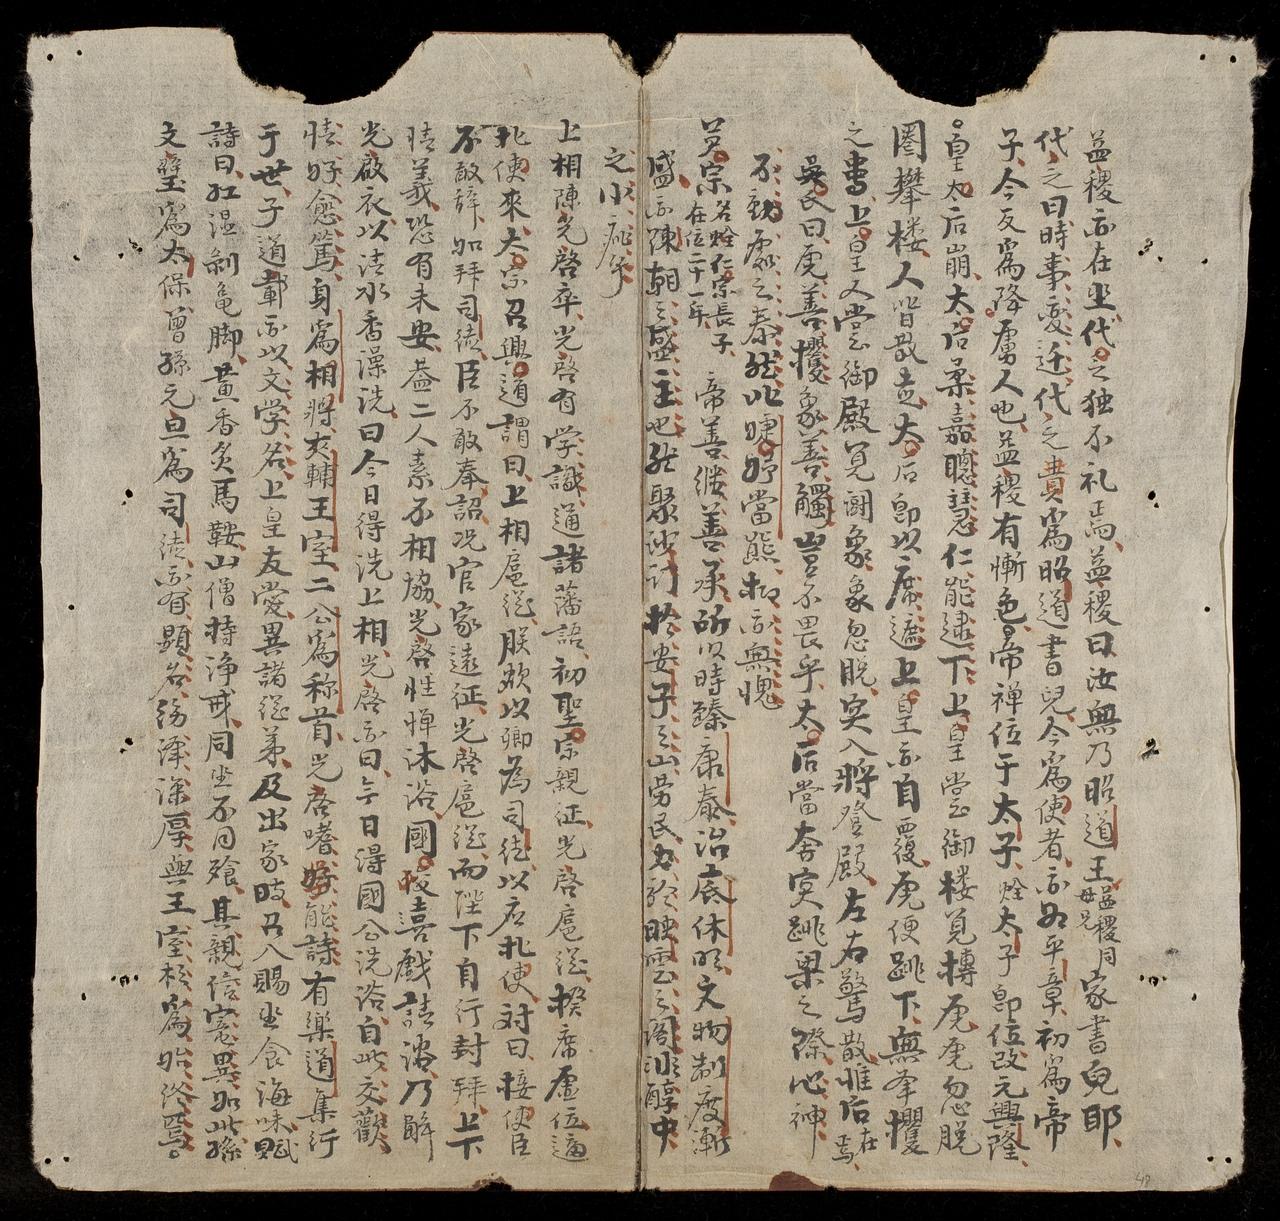 益稷亦在坐代之独不礼焉益稷曰汝無乃昭道王益稷同母兄家書兒耶
代之曰時事変迁代之貴為昭道書兒今為使者亦如平章初為帝
子今反為降虜人也益稷有慚色帝禅位于太子烇太子即位改元興隆
皇太后崩太后柔嘉聰慧仁能逮下上皇嘗御楼見搏虎虎忽脱
圏攀楼人皆散走太后即以席遮上皇亦自覆虎便跳下無搴攫
之害上皇又嘗御殿覓閲象象忽脱突入將登殿左右驚散惟太后在焉
吳氏曰虎善攫象善觸豈不畏乎太后當奔突跳梁之際心神
不動處之泰然比婕妤當熊抑亦無愧
英宗名烇仁宗長子在位二十一年 帝善継善承所以時臻康泰治底休明文物制度漸
盛亦陳朝之盛主也然聚沙門於安子之山劳民力於映雲之閣非醇中
之小疵乎
上相陳光啓卒光啓有学識通諸藩語初聖宗親征光啓扈從揆席虚位適
北使來太宗召興道謂曰上相扈從朕欲以卿為司徒以应北使対曰接使臣
不敢辞如拝司徒臣不敢奉詔况官家遠征光啓扈從而陛下自行封拝上下
情義恐有未安蓋二人素不相協光啓性憚沐浴國峻喜戯諸浴乃解
光啟衣以法水香澡洗曰今日得洗上相光啓亦曰今日得國公洗浴自此交歡
情好愈篤身為相將夾輔王室二公為称首光啓嗜好能詩有樂道集行
于世子道載亦以文学名上皇友愛異諸從弟及出家時召入賜坐食海味賦
詩曰紅湿剝亀脚黄香炙馬鞍山僧持浄戒同坐不同飧其親信寵異如此孫
文璧為太保曾孫元旦為司徒亦有顕名 澤深厚與王室相為始終焉